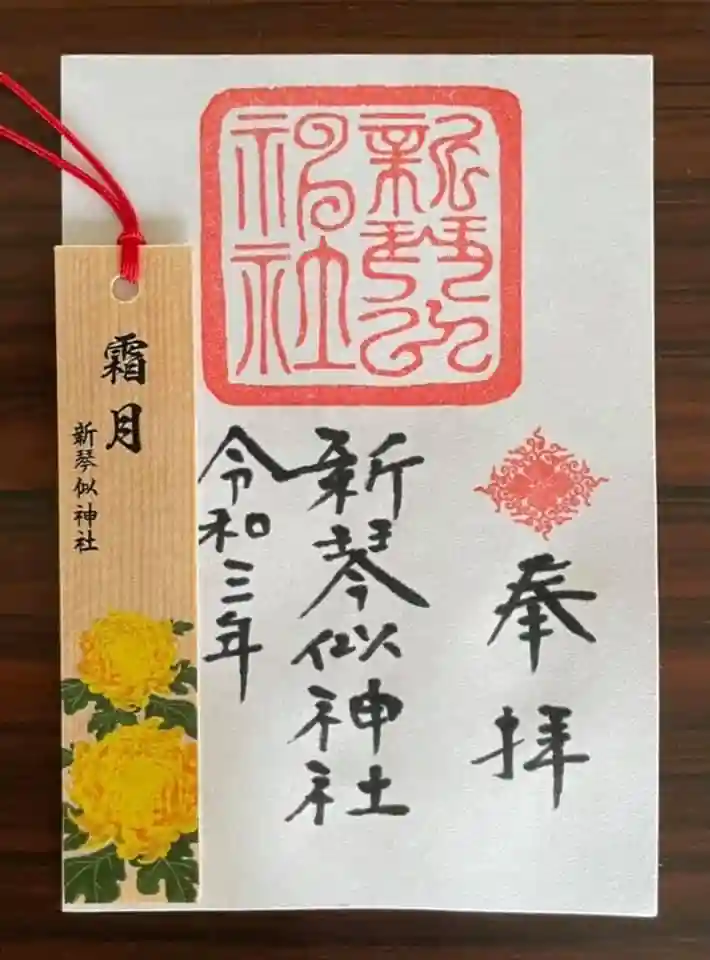 奉拝
新琴似神社
令和三年
新琴似神社
霜月
新琴似神社